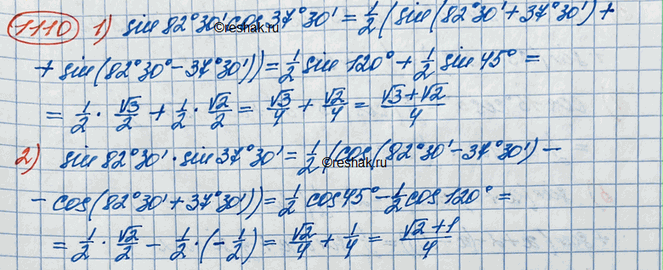 1110 1) sin 82°30' cos 37°30' = 1/2 (sin(82°30' + 37°30') +
+ sin(82°30° - 37°30')) = 1/2 sin 120° + 1/2 sin 45° =
= 1/2 · √3/2 + 1/2 · √2/2 = √3/4 + √2/4 = (√3+√2)/4
©reshak.ru
2) sin 82°30' · sin 37°30' = 1/2 (cos(82°30' - 37°30') -
- cos(82°30' + 37°30')) = 1/2 cos 45° - 1/2 cos 120° =
= 1/2 · √2/2 - 1/2 · (-1/2) = √2/4 + 1/4 = (√2+1)/4